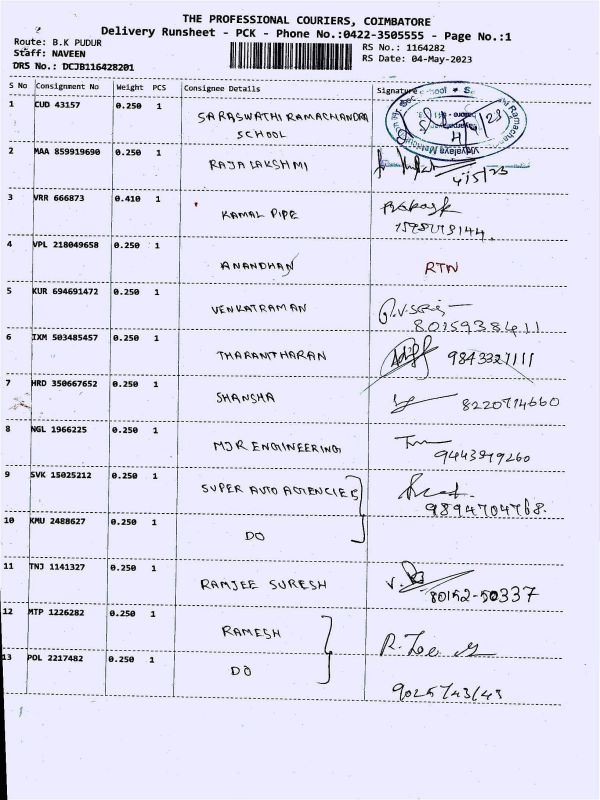 THE PROFESSIONAL COURIERS, COIMBATORE
Delivery Runsheet - PCK - Phone No.:0422-3505555 - Page No.:1
Route: B.K PUDUR
Staff: NAVEEN
DRS No.: DCJB116428201
RS No.: 1164282
RS Date: 04-May-2023
S No Consignment No Weight PCS Consignee Details Signature
1 CUD 43157 0.250 1 SARASWATHI RAMACHANDRA
SCHOOL
2 MAA 859919690 0.250 1 RAJALAKSHMI
4/5/23
3 VRR 666873 0.410 1 KAMAL PIPE
4 VPL 218049658 0.250 1 ANANDHAN RTN
5 KUR 694691472 0.250 1 VENKATRAMAN
8015938411
6 IXM 503485457 0.250 1 THARANITHARAN 9843321111
7 HRD 350667652 0.250 1 SHANSHA 8220714660
8 NGL 1966225 0.250 1 MJR ENGINEERING
9443979260
9 SVK 15025212 0.250 1 SUPER AUTO AGENCIES
9894704768.
10 KMU 2488627 0.250 1 DO
11 TNJ 1141327 0.250 1 RAMJEE SURESH
80152-50337
12 MTP 1226282 0.250 1 RAMESH
13 POL 2217482 0.250 1 DO